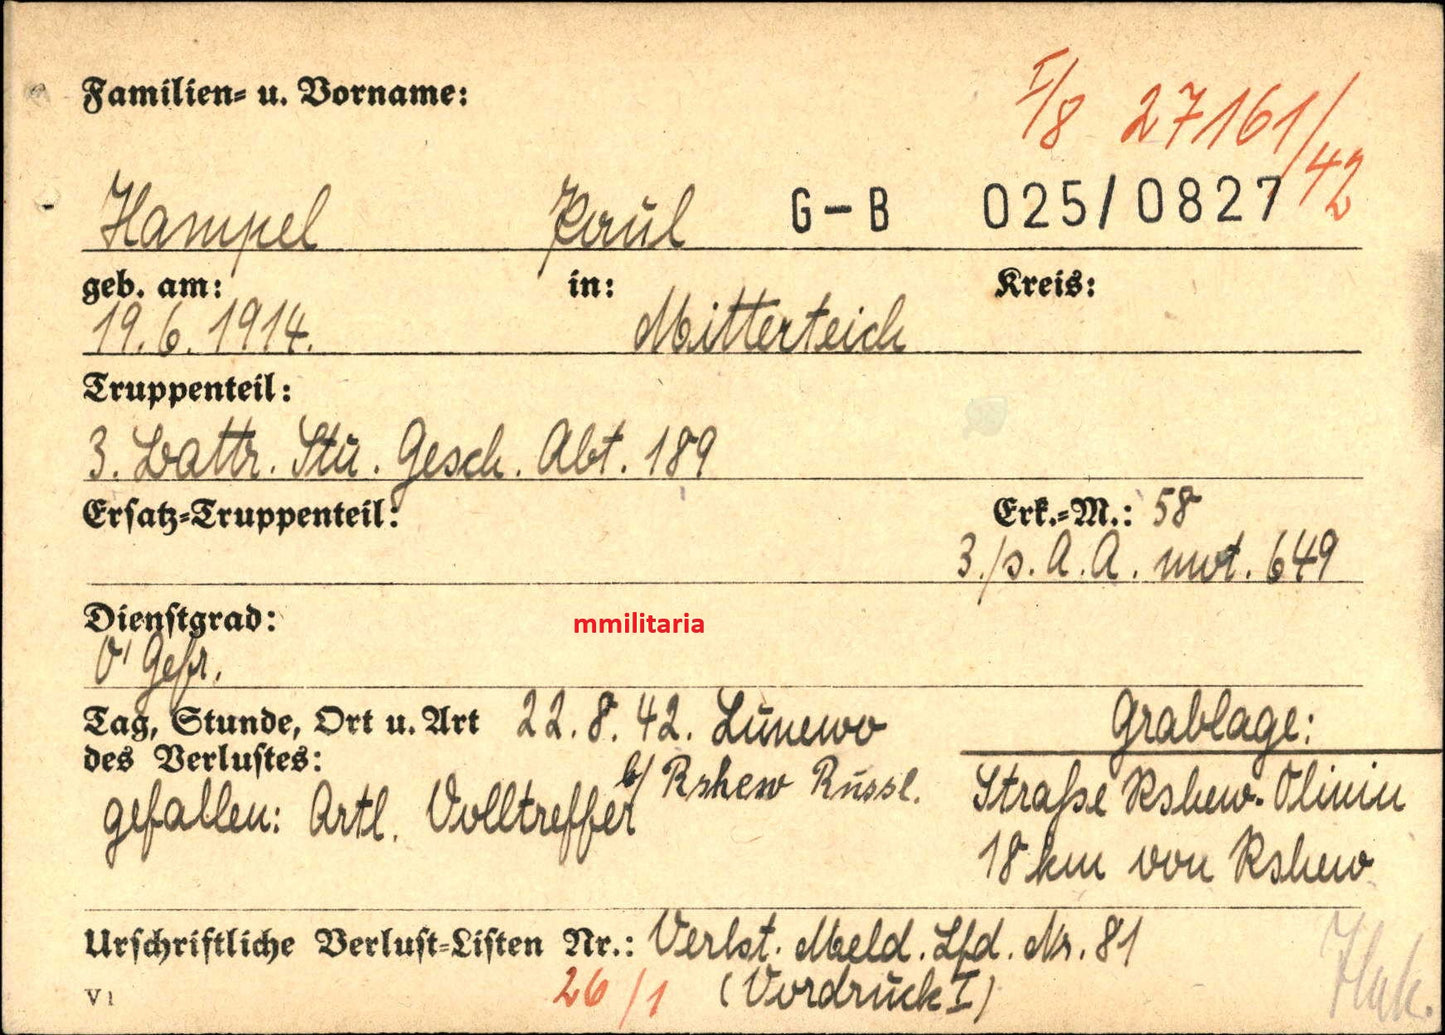 Familien- u. Vorname:
I/8 27161/42
Hampel Paul G-B 025/0827
geb. am: in: Kreis:
19.6.1914. Mitterteich
Truppenteil:
3. Battr. Stu. Gesch. Abt. 189
Ersatz-Truppenteil: Erk.-M.: 58
3./s. A. A. mot. 649
Dienstgrad:
mmilitaria
O'Gefr.
Tag, Stunde, Ort u. Art 22.8.42. Lunewo Grablage:
des Verlustes: b/ Rshew Russl.
gefallen: Artl. Volltreffer Straße Rshew-Olinin
18 km von Rshew
Urschriftliche Verlust-Listen Nr.: Verlst. Meld. Lfd. Nr. 81
V1 26/1 (Vordruck I)